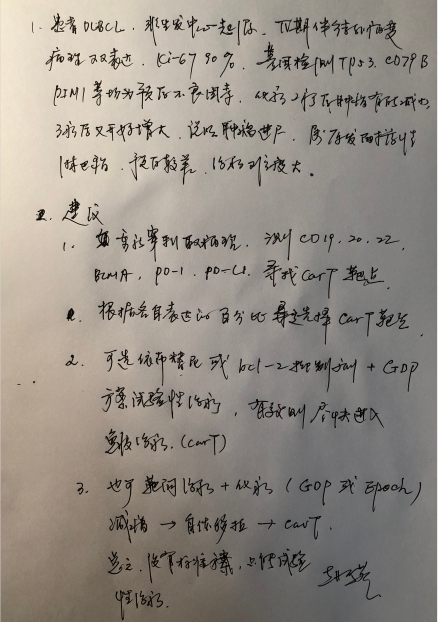 1. 患者DLBCL, 非生发中心起源, IV期伴结外病变
病理双表达, Ki-67 90%, 基因检测TP53, CD79B
PIM1等均为预后不良因素, 化疗2疗后肿块有所减小
3疗后又开始增大, 说明肿瘤进展, 属原发耐药性
淋巴瘤, 预后较差, 治疗难度大。
二. 建议
1. 如 再次穿刺取病理, 测CD19, 20, 22,
BCMA, PD-1, PD-L1, 寻找CarT靶点
根据各自表达的百分比 选择CarT靶点
2. 可先依布替尼或bcl-2抑制剂+GDP
方案试验性治疗, 有效则尽快进入
免疫治疗. (carT)
3. 也可靶向治疗+化疗(GDP或Epoch)
减瘤→自体移植→carT.
总之, 没有标准方案, 只能试验
性治疗.